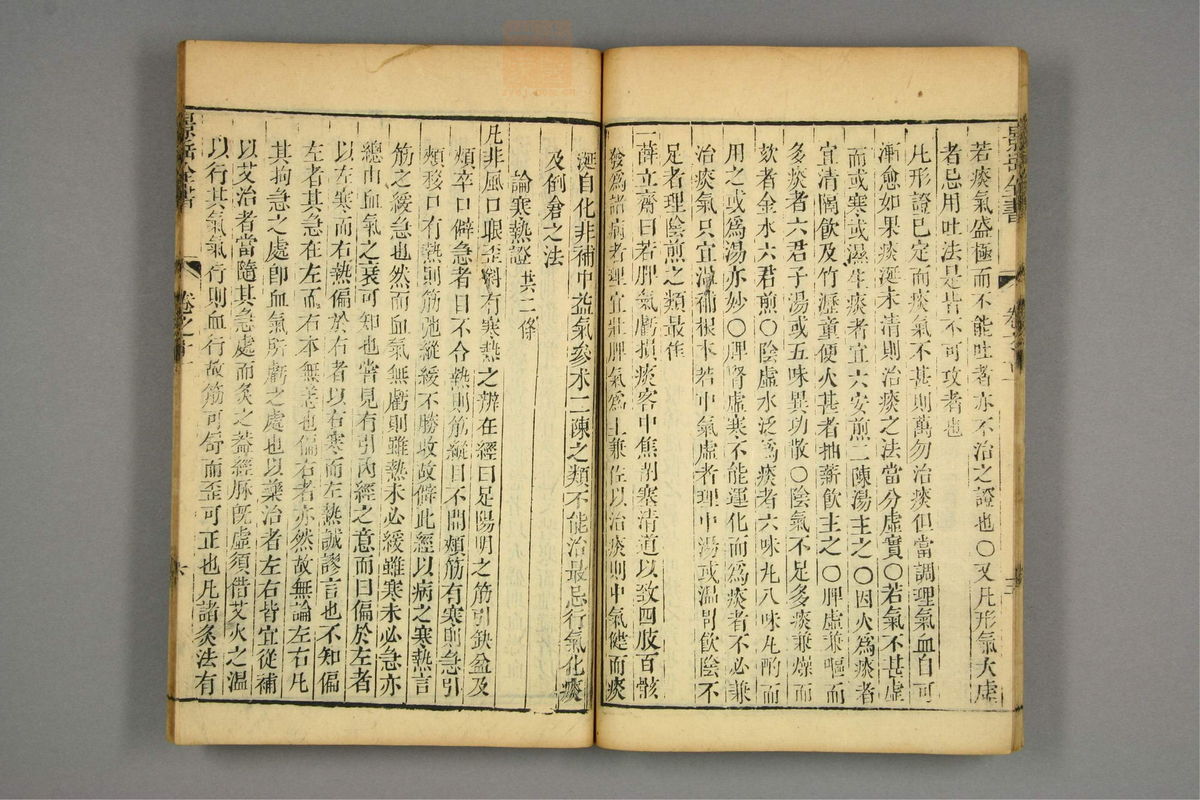 若痰氣盛極而不能吐者亦不治之證也○又凡形氣大虛
者忌用吐法是皆不可攻者也
凡形證已定而痰氣不甚則萬勿治痰但當調理氣血自可
漸愈如果痰涎未清則治痰之法當分虛實○若氣不甚虛
而或寒或濕生痰者宜六安煎二陳湯主之○因火爲痰者
宜清膈飲及竹瀝童便火甚者抽薪飲主之○脾虛兼嘔而
多痰者六君子湯或五味異功散○陰氣不足多痰兼燥而
欬者金水六君煎○陰虛水泛爲痰者六味凡八味凡酌而
用之或爲湯亦妙○脾腎虛寒不能運化而爲痰者不必兼
治痰氣只宜溫補根本若中氣虛者理中湯或温胃飲陰不
足者理陰煎之類最佳
一薛立齋曰若脾氣虧損痰客中焦閉塞清道以致四肢百骸
發爲諸病者理宜壯脾氣爲主兼佐以治痰則中氣健而痰
涎自化非補中益氣參术二陳之類不能治最忌行氣化痰
及倒倉之法
論寒熱證 共二條
凡非風口眼歪斜有寒熱之辨在經曰足陽明之筋引缺盆及
頰卒口僻急者目不合熱則筋縱目不開頰筋有寒則急引
頰移口有熱則筋弛縱緩不勝收故僻此經以病之寒熱言
筋之緩急也然而血氣無虧則雖熱未必緩雖寒未必急亦
總由血氣之衰可知也嘗見有引內經之意而曰偏於左者
以左寒而右熱偏於右者以右寒而左熱誠謬言也不知偏
左者其急在左而右本無恙也偏右者亦然故無論左右凡
其拘急之處卽血氣所虧之處也以藥治者左右皆宜從補
以艾治者當隨其急處而灸之葢經脉旣虛須借艾火之温
以行其氣氣行則血行故筋可舒而歪可正也凡諸灸法有
景岳全書 卷之十一 六